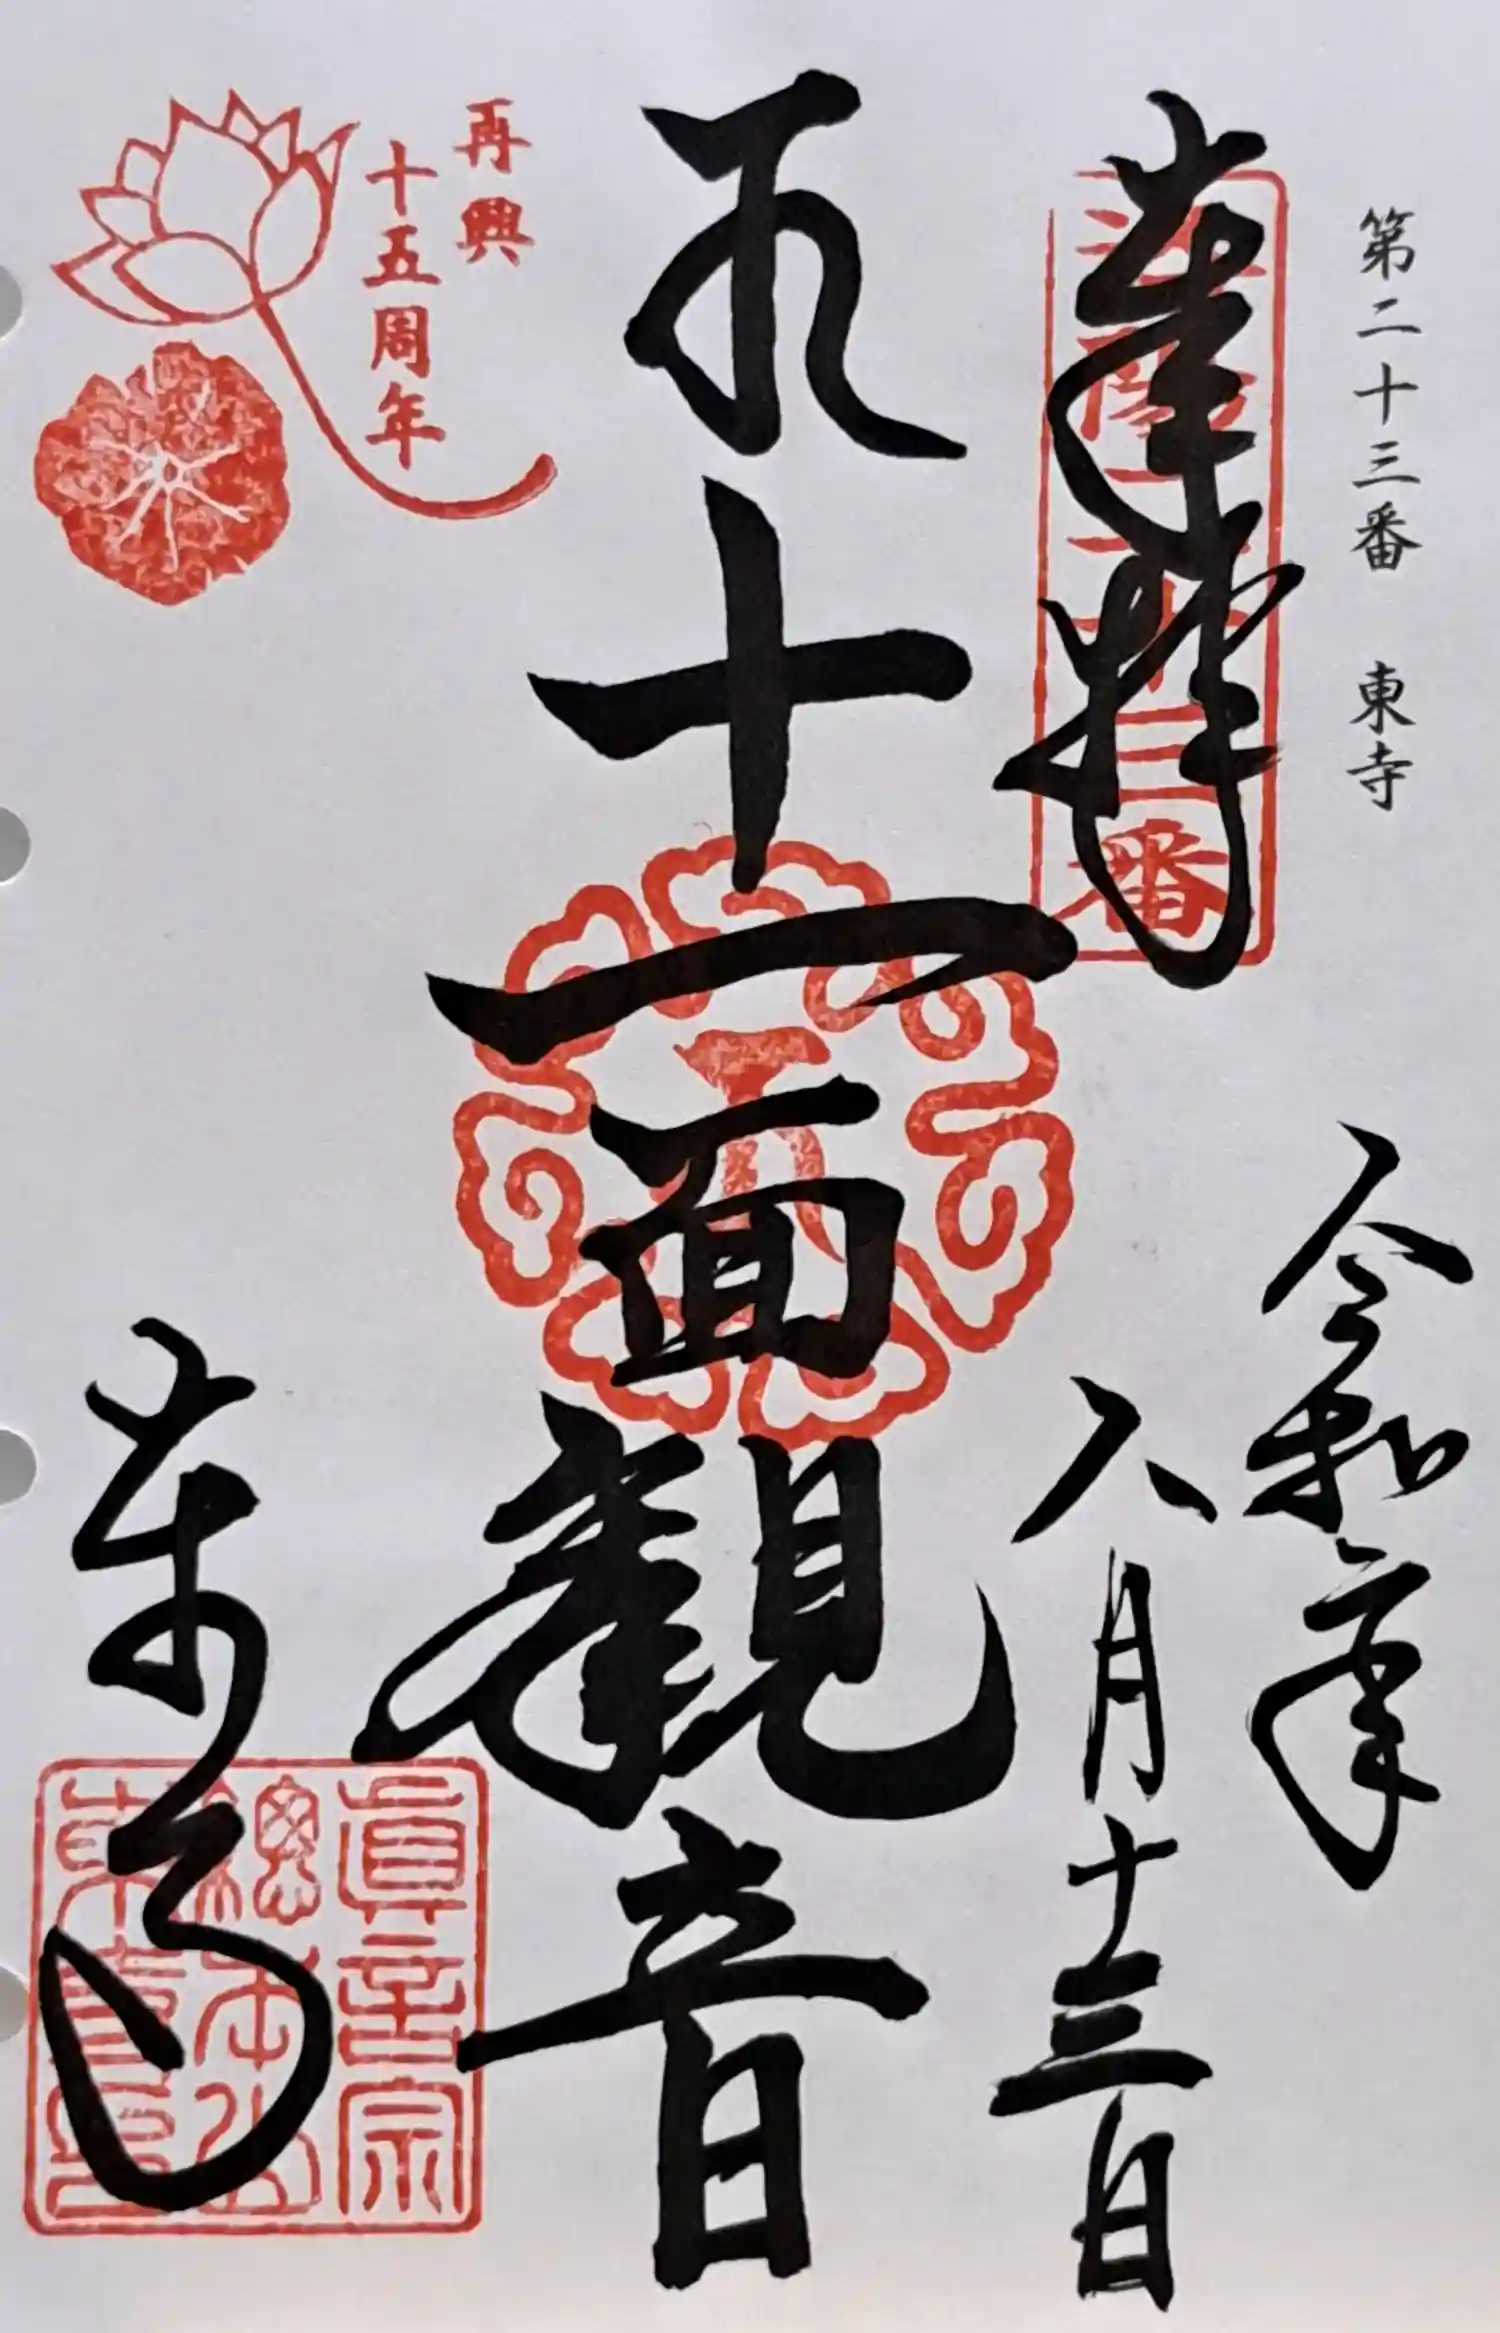 第二十三番 東寺
奉拝
十三番
令和六年
八月十三日
十一面観音
再興
十五周年
東寺
眞言宗
總本山